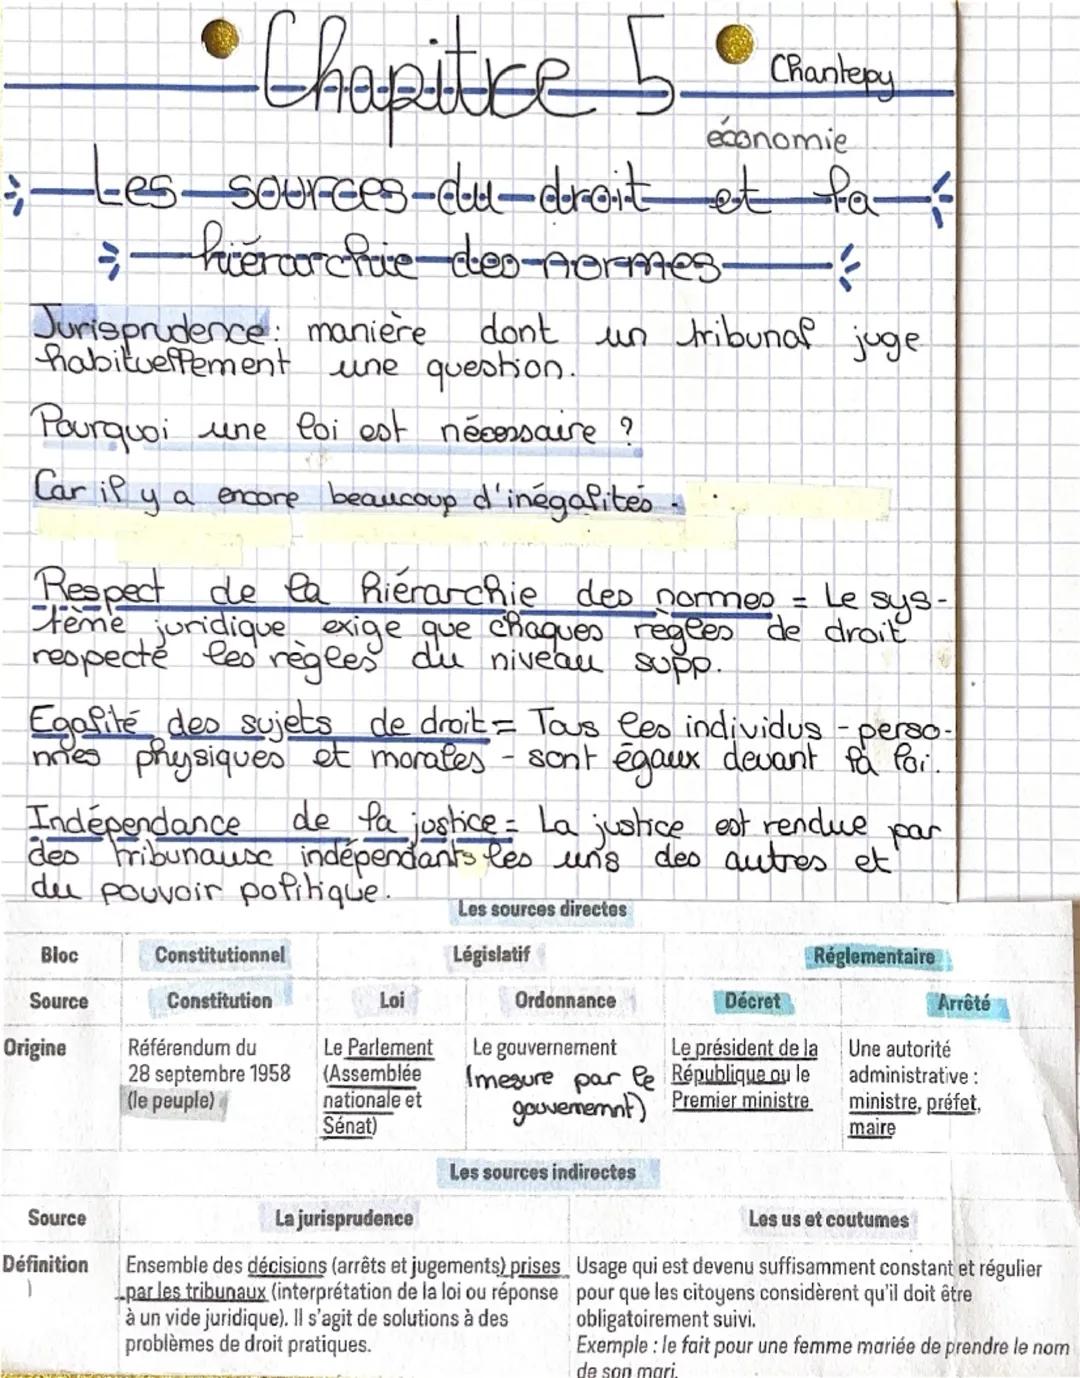 Chapitre 5
Chantepy
économie
Les sources du droit et la
hiérarchie des normes
Jurisprudence : manière dont un tribunal juge
habituellement une question.
Pourquoi une loi est nécessaire ?
Car il y a encore beaucoup d'inégalités.
Respect de la hiérarchie des normes = Le sys-
tème juridique exige que chaques règles de droit
respecte les règles du niveau supp.
Egalité des sujets de droit = Tous les individus - perso-
nnes physiques et morales - sont égaux devant la loi.
Indépendance de la justice = La justice est rendue par
des tribunaux indépendants les uns des autres et
du pouvoir politique.
Les sources directes
Bloc Constitutionnel Législatif Réglementaire
Source Constitution Loi Ordonnance Décret Arrêté
Origine Référendum du Le Parlement Le gouvernement Le président de la Une autorité
28 septembre 1958 (Assemblée (mesure par le République ou le administrative :
(le peuple) nationale et gouvernemnt) Premier ministre ministre, préfet,
Sénat) maire
Les sources indirectes
Source La jurisprudence Les us et coutumes
Définition Ensemble des décisions (arrêts et jugements) prises Usage qui est devenu suffisamment constant et régulier
par les tribunaux (interprétation de la loi ou réponse pour que les citoyens considèrent qu'il doit être
à un vide juridique). Il s'agit de solutions à des obligatoirement suivi.
problèmes de droit pratiques. Exemple : le fait pour une femme mariée de prendre le nom
de son mari.